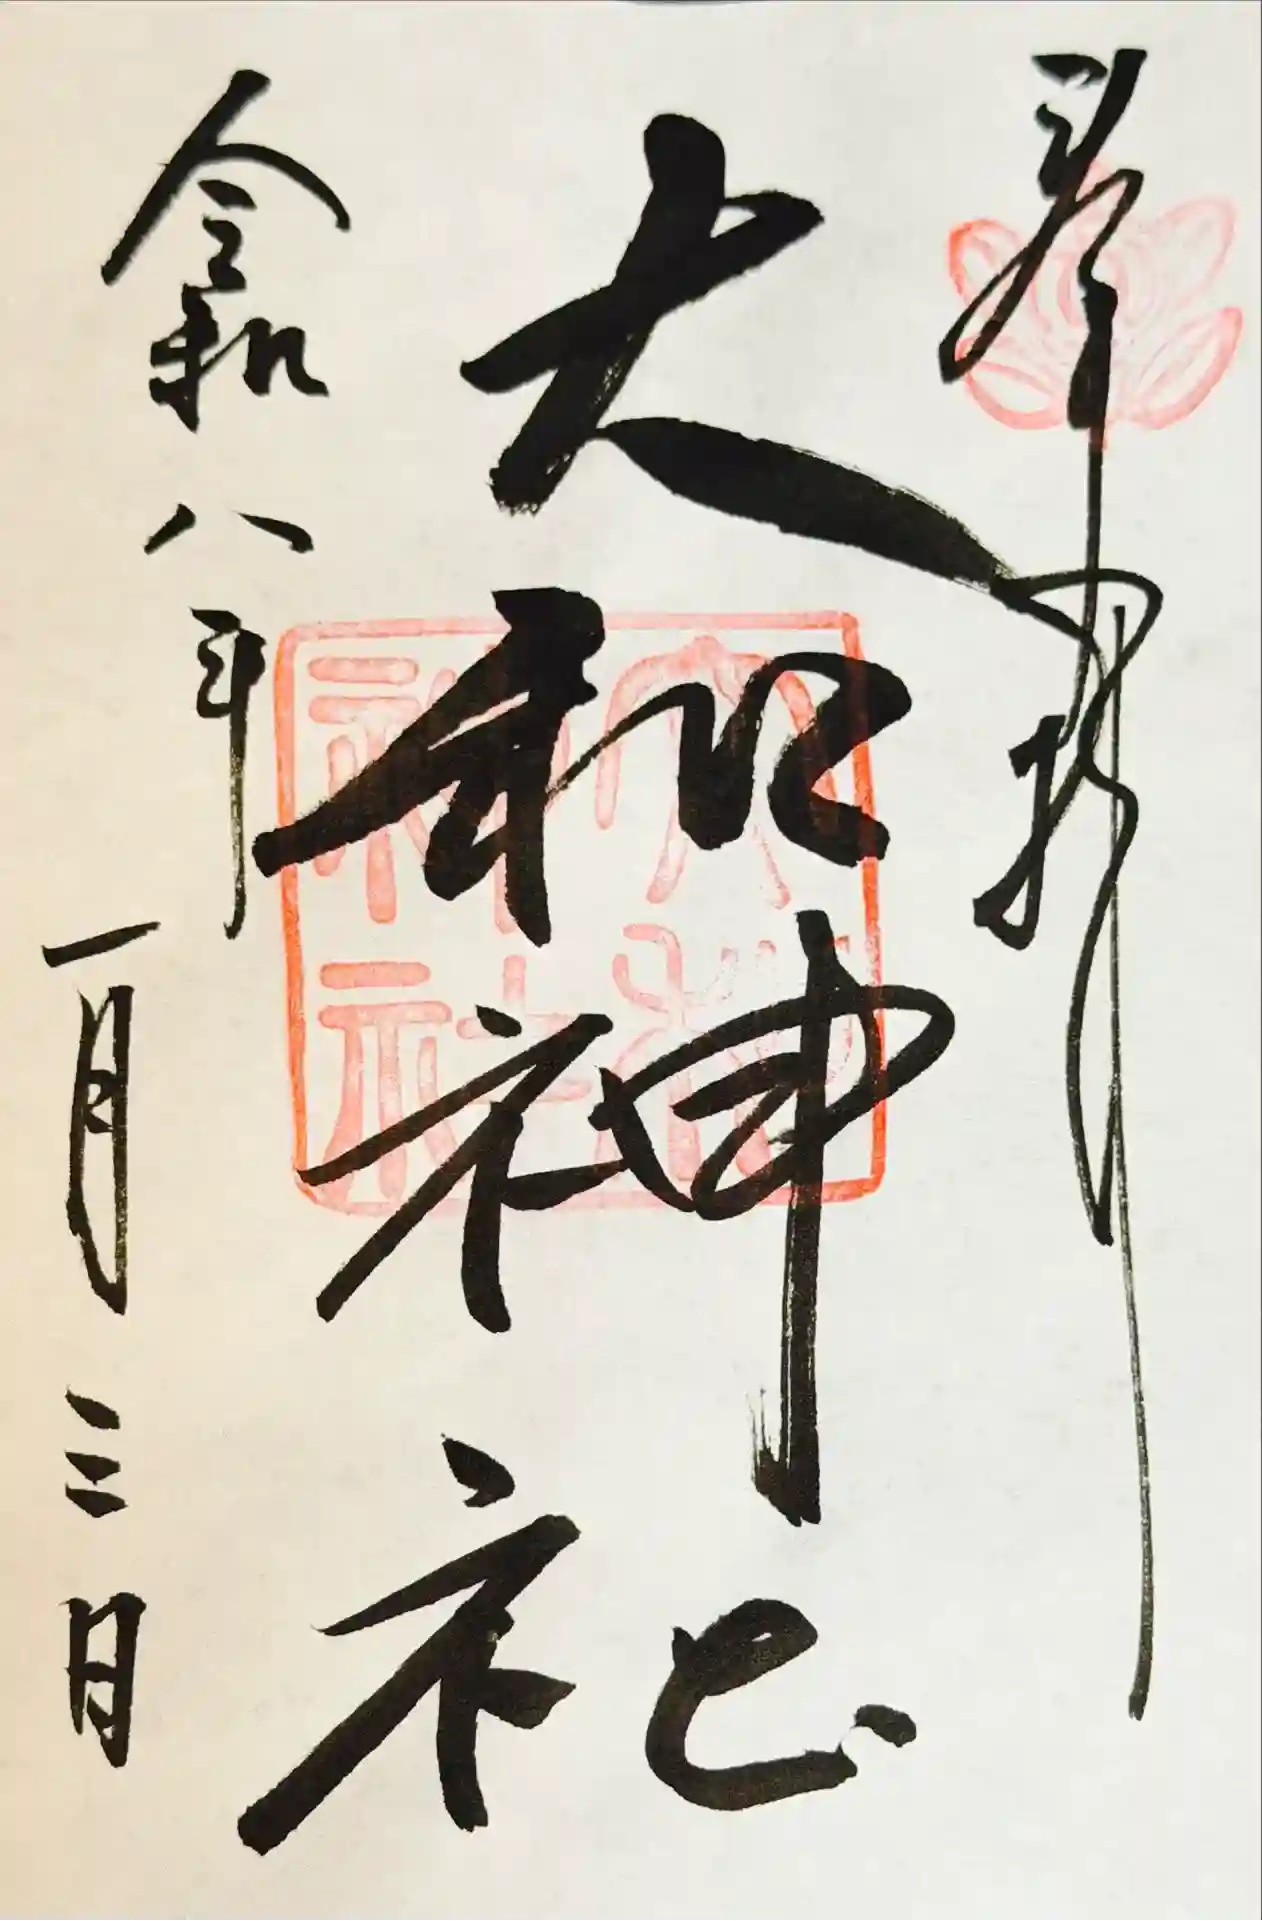 奉拝
大和神社
大和神社
令和八年
一月三日